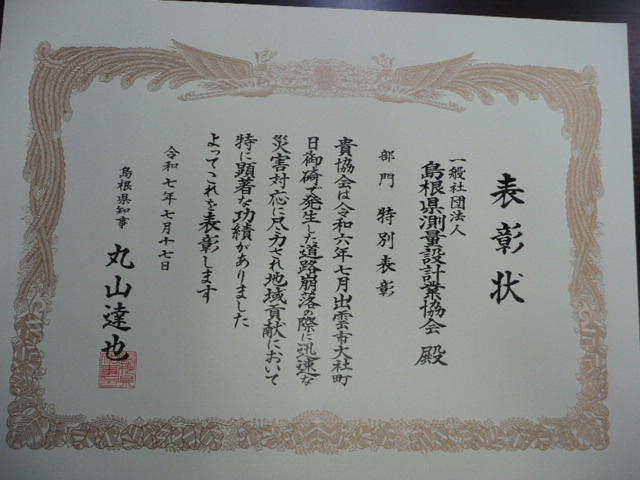 表彰状
一般社団法人
島根県測量設計業協会 殿
部門 特別表彰
貴協会は令和六年七月出雲市大社町
日御碕で発生した道路崩落の際に迅速な
災害対応に尽力され地域貢献において
特に顕著な功績がありました
よってこれを表彰します
令和七年七月十七日
島根県知事 丸山達也